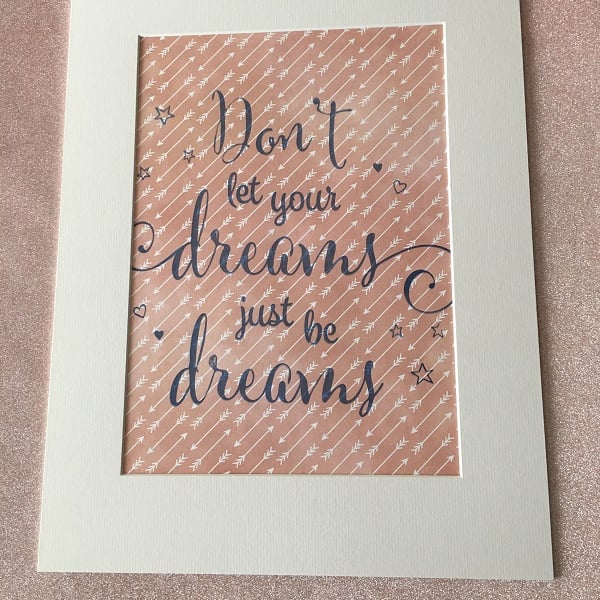 Don't
let your
dreams
just be
dreams